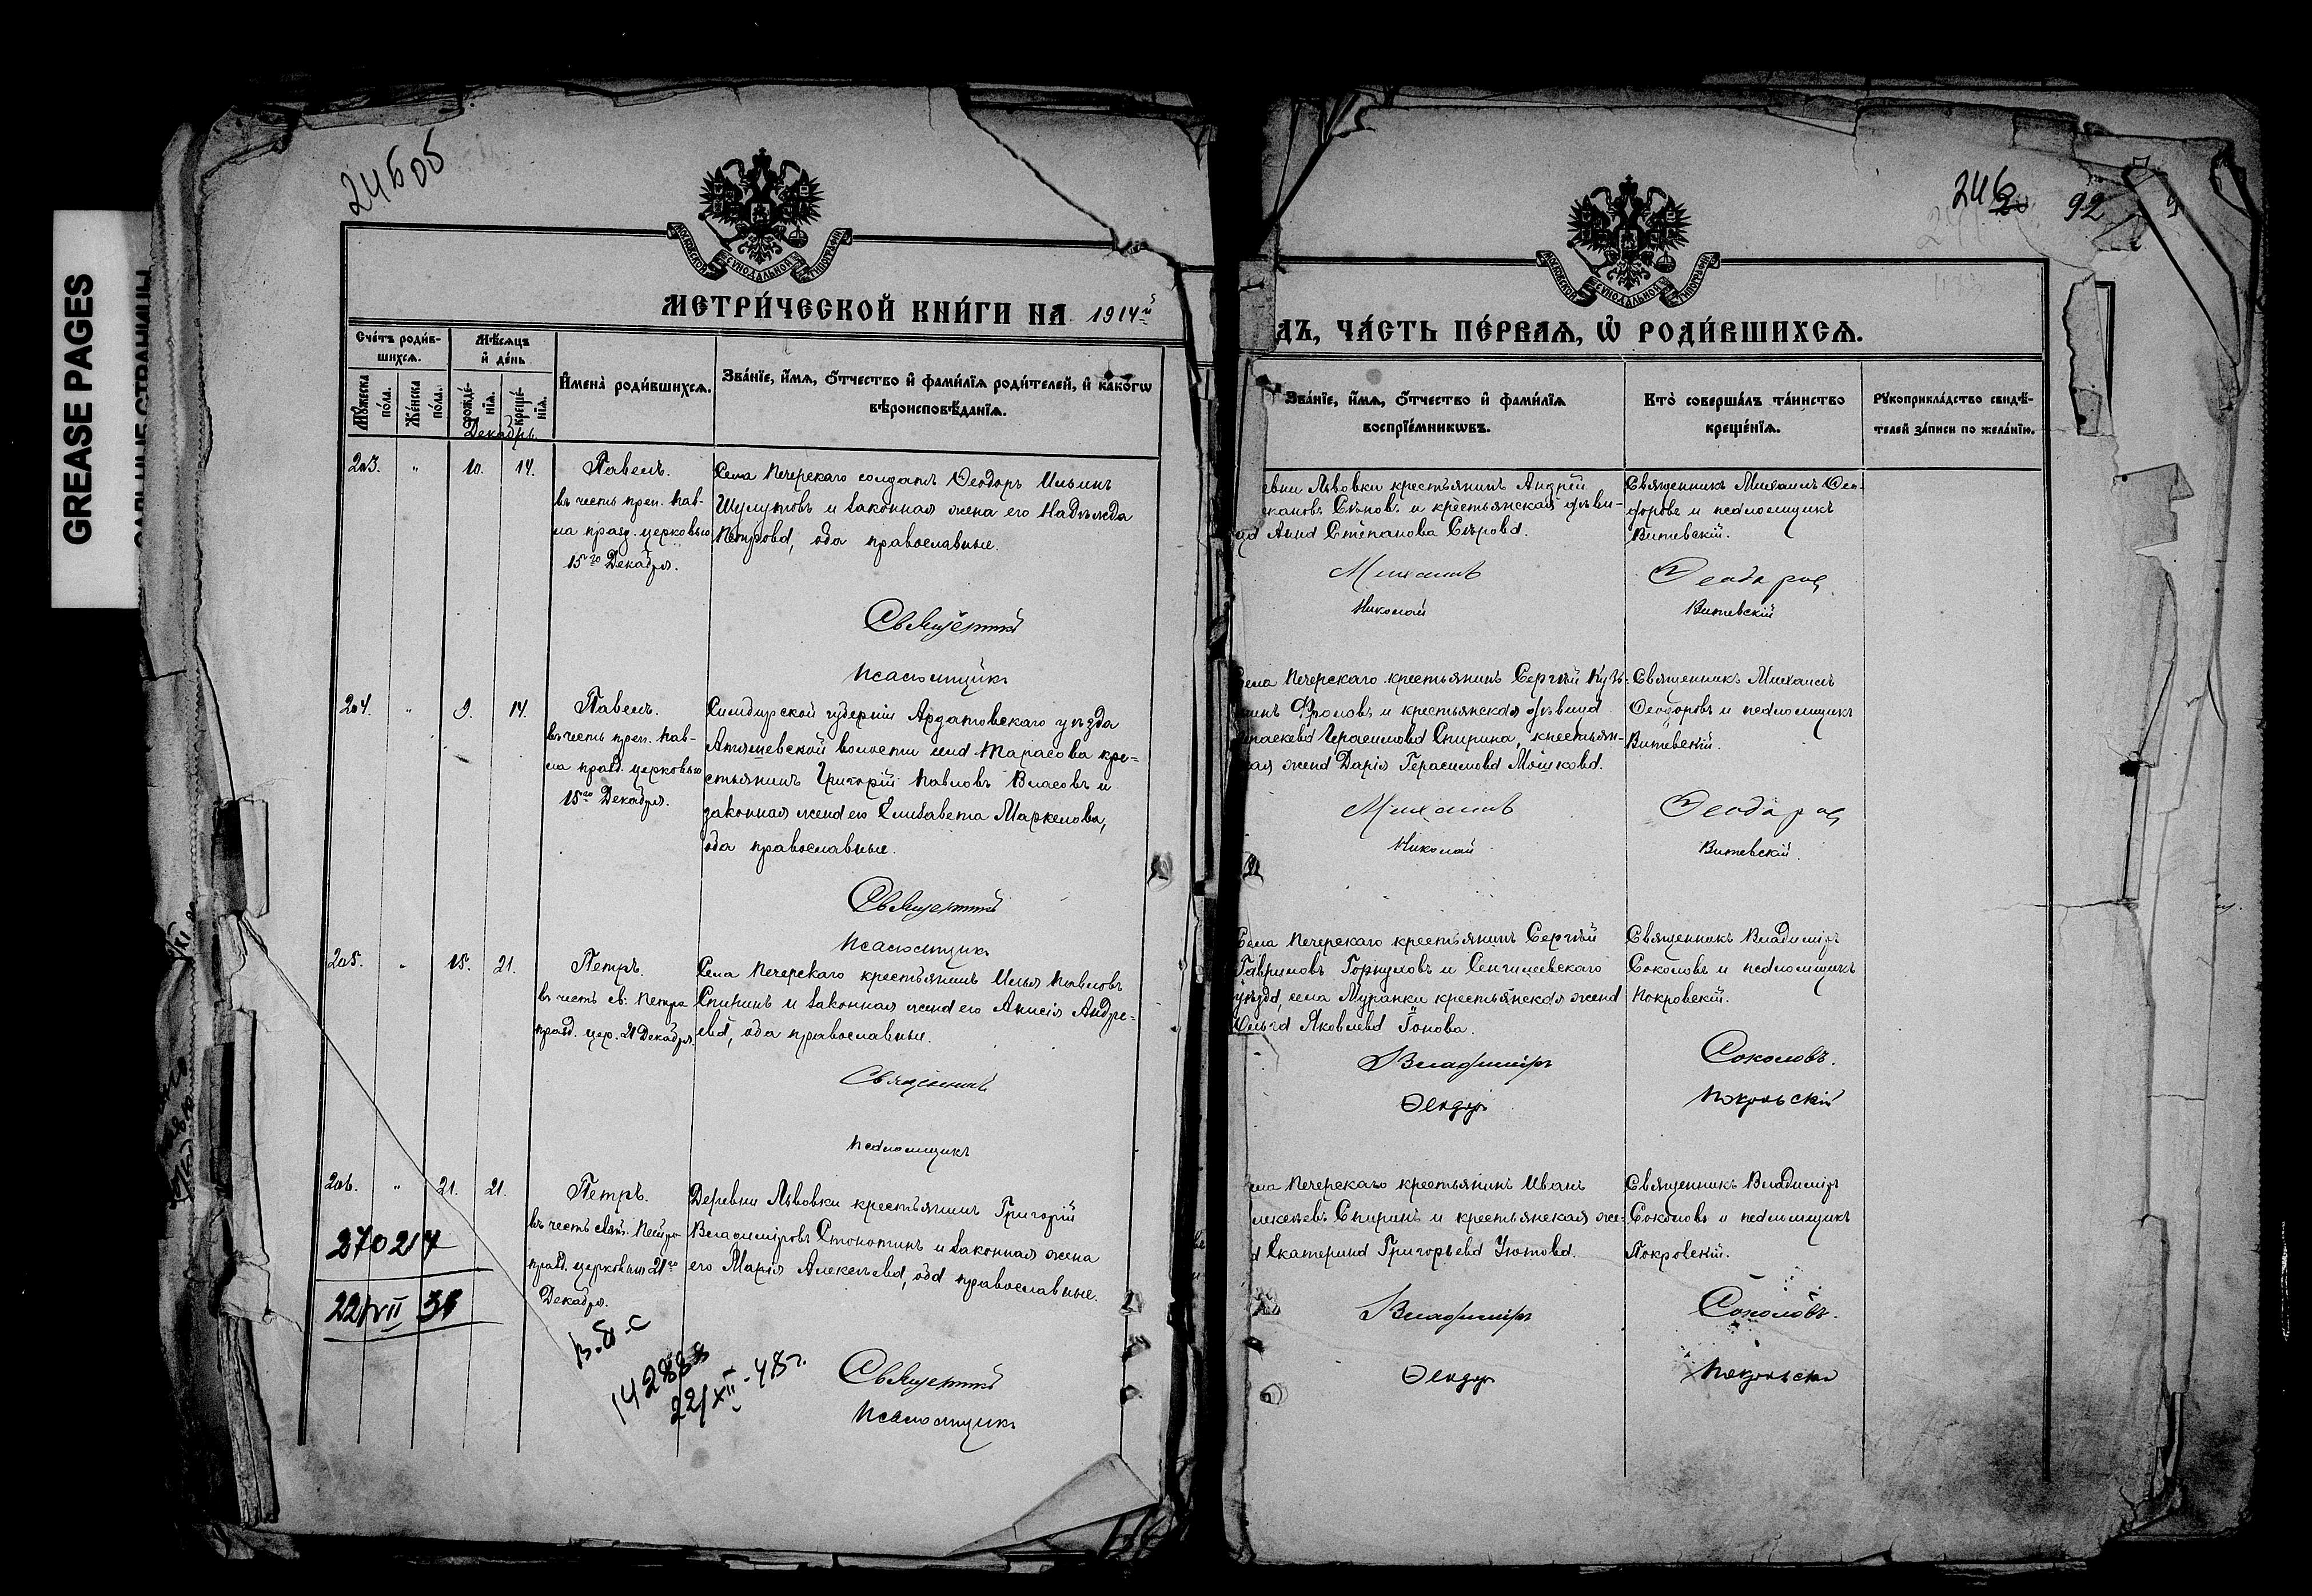 GREASE PAGES
САЛЬНЫЕ СТРАНИЦЫ
246об
МОСКОВСКОЙ СѴНОДАЛЬНОЙ ТИПОГРАФІИ
МЕТРИ́ЧЕСКОЙ КНИ́ГИ НА 1914й
Сче́тъ роди́в-
шихся.
Мѣ́сяцъ
и҆ де́нь
Му́жеска
по́ла.
Же́нска
по́ла.
рожде́-
нїя.
креще́-
нїя.
И҆мена̀ роди́вшихся.
Зва́нїе, и҆́мя, ѻ҆́тчество и҆ фами́лїя роди́телей, и҆ како́гѡ
вѣроисповѣ́данїя.
Декабрь
203. " 10. 14. Павелъ.
въ честь преп. Пав-
ла празд. церковью
15го Декабря.
Села Печерскаго солдатъ Ѳеодоръ Ильинъ
Шулутовъ и законная жена его Надежда
Петрова, оба православные.
Священникъ
Псаломщикъ
204. " 9. 14. Павелъ.
въ честь преп. Пав-
ла празд. церковью
15го Декабря.
Симбирской губерніи Ардатовскаго уѣзда
Атяшевской волости села Тарасова кре-
стьянинъ Григорій Павловъ Власовъ и
законная жена его Елизавета Маркелова,
оба православные.
Священникъ
Псаломщикъ
205. " 15. 21. Петръ.
въ честь св. Петра
празд. цер. 21 Декабря.
Села Печерскаго крестьянинъ Илья Павловъ
Спиринъ и законная жена его Анисія Андре-
ева, оба православные.
Священникъ
Псаломщикъ
206. " 21. 21. Петръ.
въ честь свят. Петра
празд. церковью 21го
Декабря.
Деревни Львовки крестьянинъ Григорій
Владиміровъ Столотинъ и законная жена
его Марія Алексѣева, оба православные.
270214
22/VII 31
142888
22/XII-48г.
Священникъ
Псаломщикъ
246
92
МОСКОВСКОЙ СѴНОДАЛЬНОЙ ТИПОГРАФІИ
ДЪ, ЧА́СТЬ ПЕ́РВАЯ, Ѡ҆ РОДИ́ВШИХСЯ.
Зва́нїе, и҆́мя, ѻ҆́тчество и҆ фами́лїя
воспрїе́мникѡвъ.
Кто̀ соверша́лъ та́инство
креще́нїя.
Рукоприкла́дство свидѣ́-
телей за́писи по жела́нїю.
евни Львовки крестьянинъ Андрей
Сѣровъ и крестьянская дѣви-
ца Анна Степанова Сѣрова.
Священникъ Михаилъ Ѳео-
доровъ и псаломщикъ
Витевскій.
Михаилъ Ѳеодоровъ
Николай Витевскій
Села Печерскаго крестьянинъ Сергѣй Кузь-
Фроловъ и крестьянская дѣвица
Герасимова Спирина, крестьян-
кая жена Дарія Герасимова Мошкова.
Священникъ Михаилъ
Ѳеодоровъ и псаломщикъ
Витевскій.
Михаилъ Ѳеодоровъ
Николай Витевскій.
Села Печерскаго крестьянинъ Сергѣй
Гавриловъ Горкуловъ и Сенгилеевскаго
уѣзда, села Муранки крестьянская жена
Ольга Яковлева Гонова.
Священникъ Владиміръ
Соколовъ и псаломщикъ
Покровскій.
Владиміръ Соколовъ.
Ѳеодоръ Покровскій
ела Печерскаго крестьянинъ Иванъ
лексѣевъ Спиринъ и крестьянская же-
а Екатерина Григорьева Утова.
Священникъ Владиміръ
Соколовъ и псаломщикъ
Покровскій.
Владиміръ Соколовъ.
Ѳеодоръ Покровскій